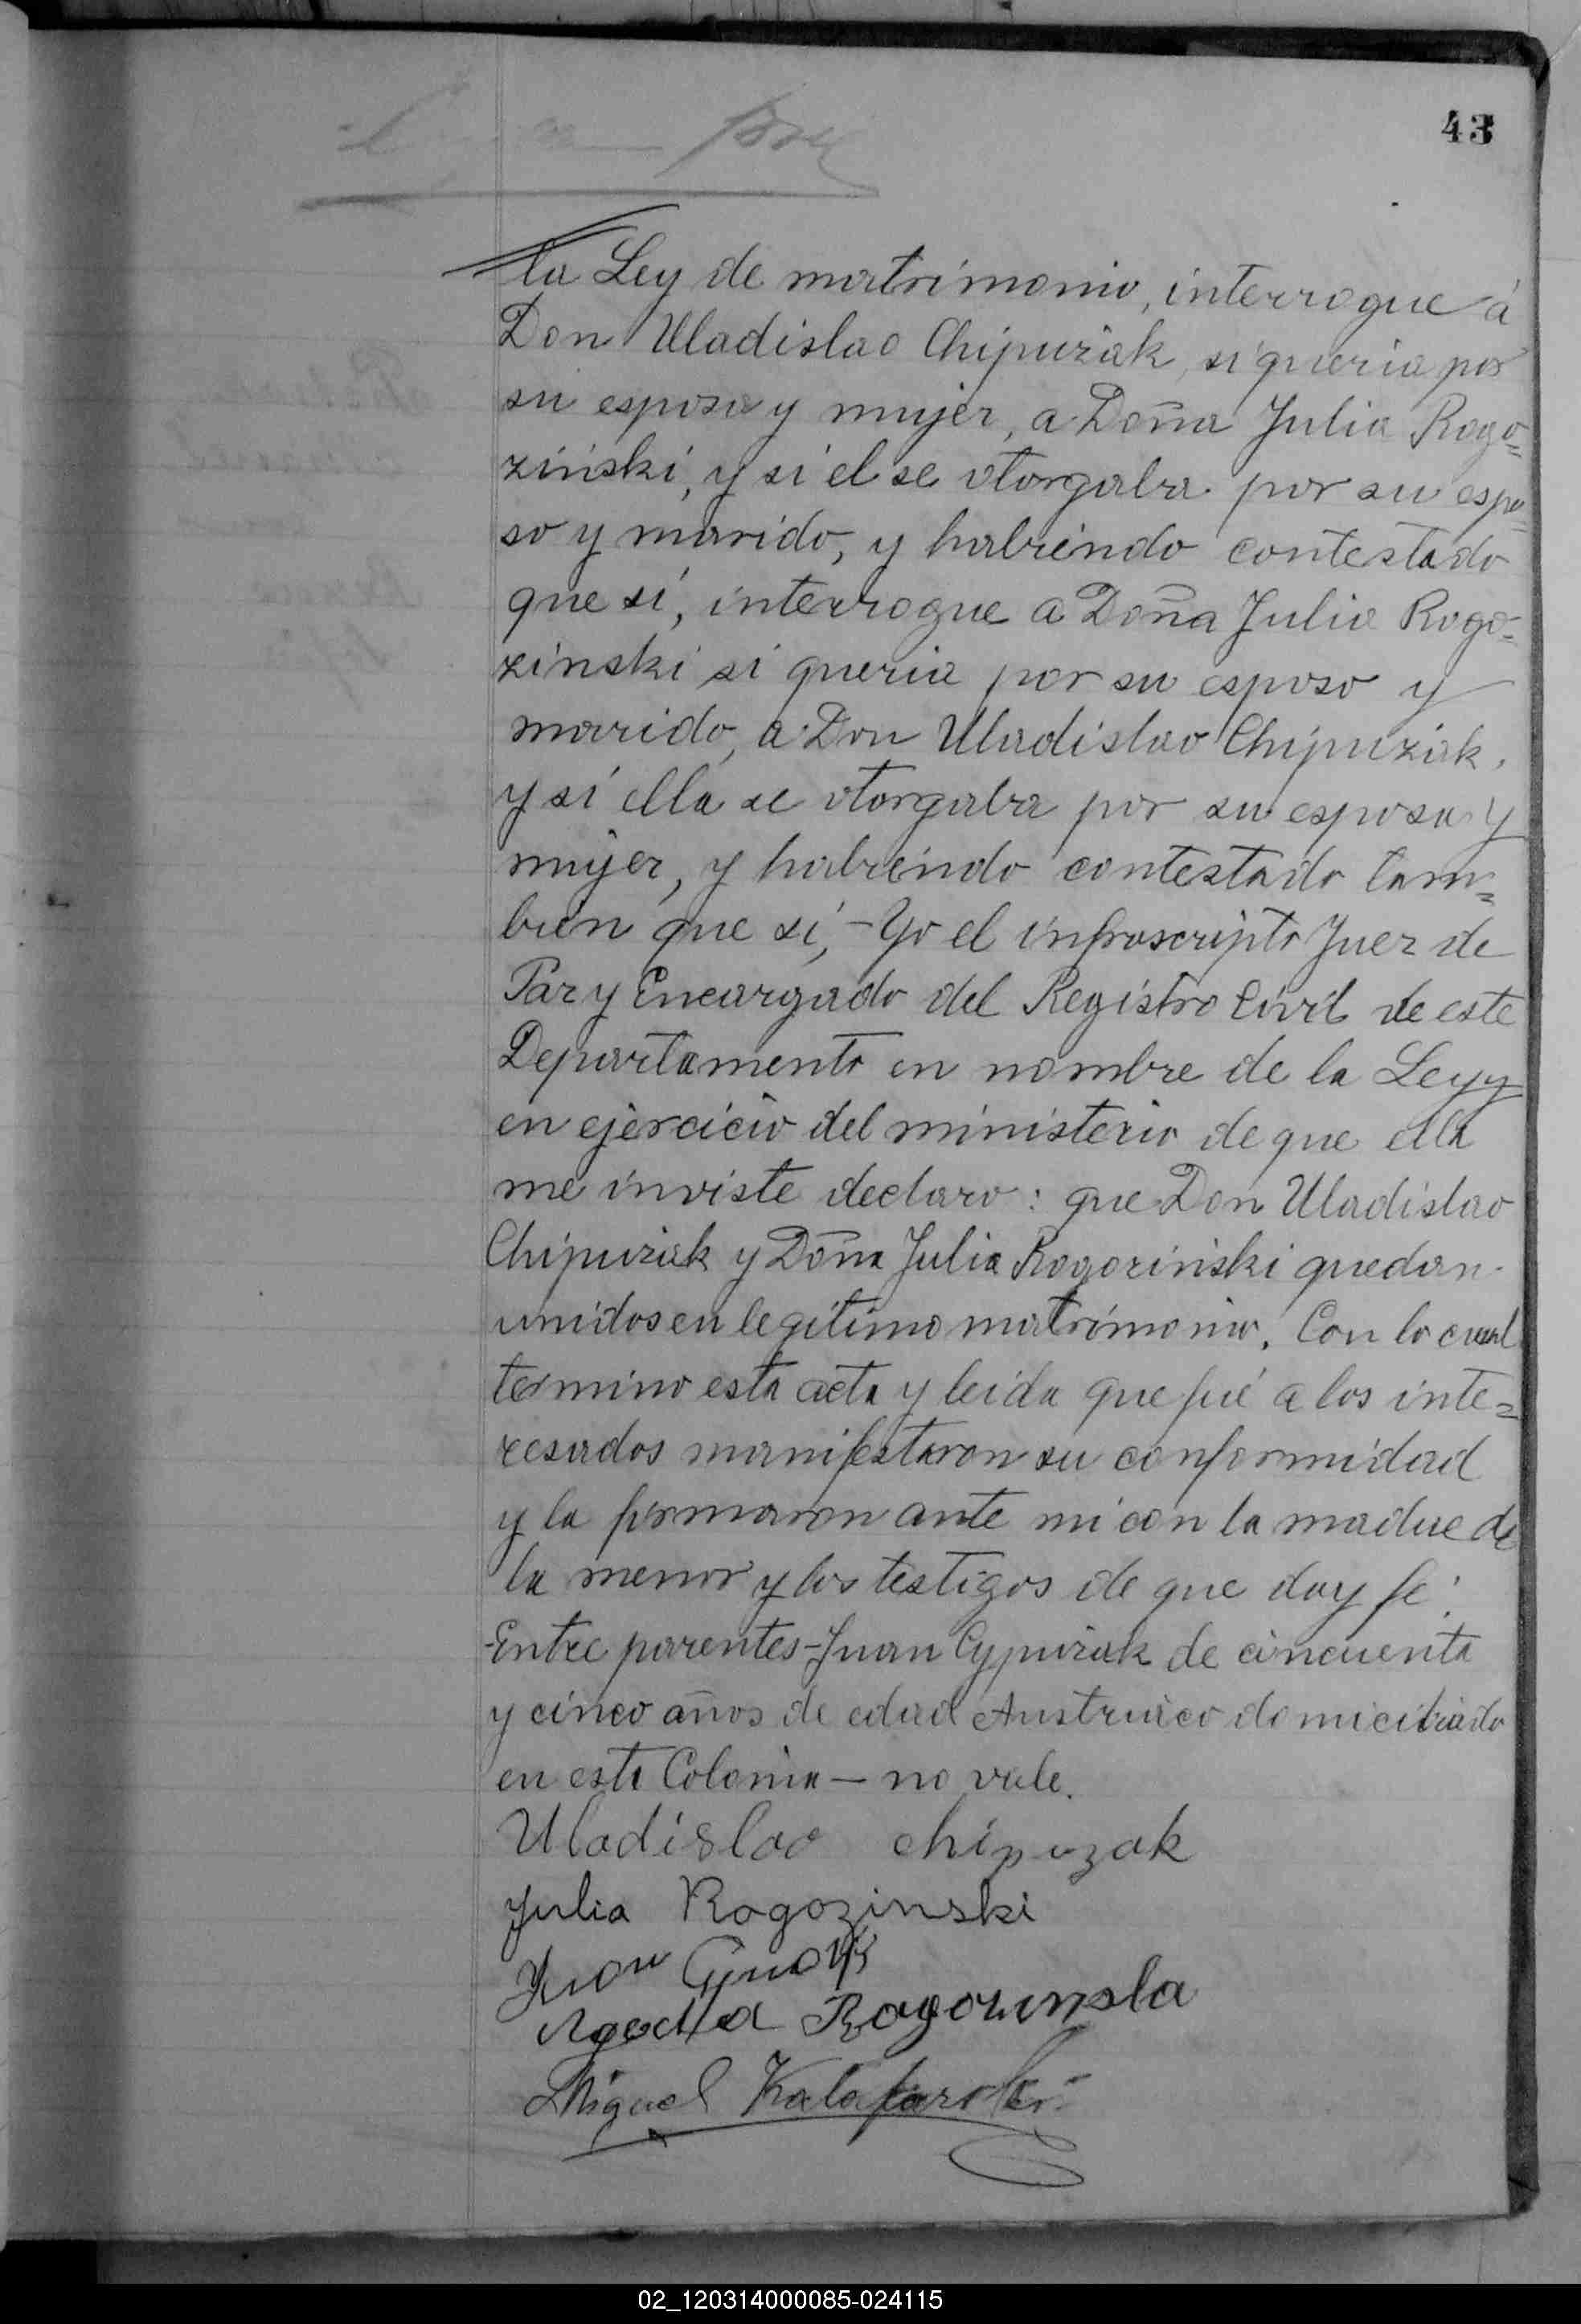 43
la Ley de matrimonio, interrogue á
Don Uladislao Chipuzak, si queria por
su esposa y mujer, a Doña Julia Rogo=
zinski, y si el se otorgaba por su espo=
so y marido, y habiendo contestado
que sí, interrogue a Doña Julia Rogo=
zinski si queria por su esposo y
marido, a Don Uladislao Chipuzak,
y si ella se otorgaba por su esposa y
mujer, y habiendo contestado tam=
bien que si, - Yo el infrascripto Juez de
Paz y Encargado del Registro Civil de este
Departamento en nombre de la Ley y
en ejercicio del ministerio de que ella
me inviste declaro: que Don Uladislao
Chipuzak y Doña Julia Rogozinski quedan
unidos en legitimo matrimonio. Con lo cual
termino esta acta y leida que fué a los inte=
resados manifestaron su conformidad
y la firmaron ante mi con la madre de
la menor y los testigos de que doy fe.
-Entre parentes-Juan Cypuzak de cincuenta
y cinco años de edad Austriaco domiciliado
en esta Colonia - no vale.
Uladislao chipuzak
Julia Rogozinski
Juan
Rogozinska
Miguel
02_120314000085-024115